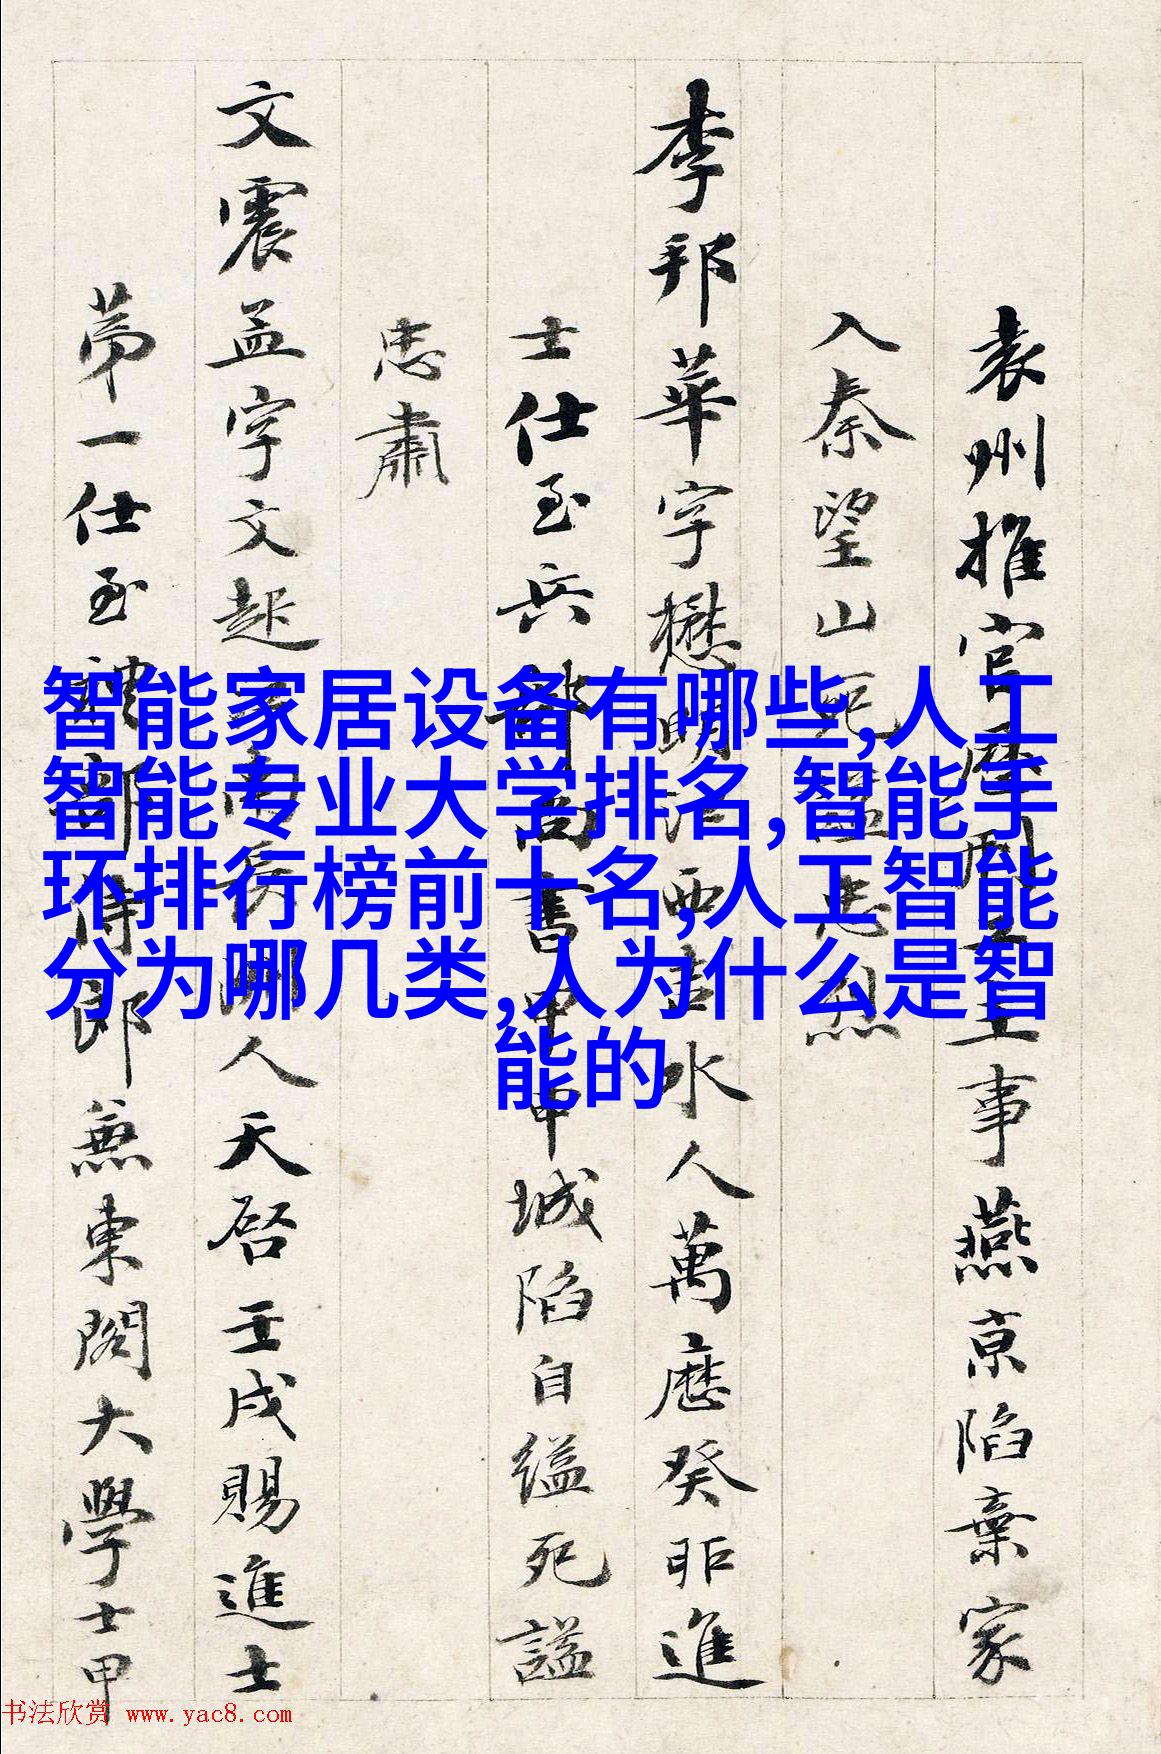 袁州推官刑主事燕京陷棄家
入秦望山死謚忠烈
李邦華字懋明江西吉水人萬歷癸卯進
士仕至兵部尚書甲申城陷自縊死謚
忠肅
文震孟字文起南長洲人天啓壬戌賜進士
第一仕至禮部侍郎兼東閣大學士甲
智能家居设备有哪些,人工
智能专业大学排名,智能手
环排行榜前十名,人工智能
分为哪几类,人为什么是智
能的
书法欣赏 www.yac8.com